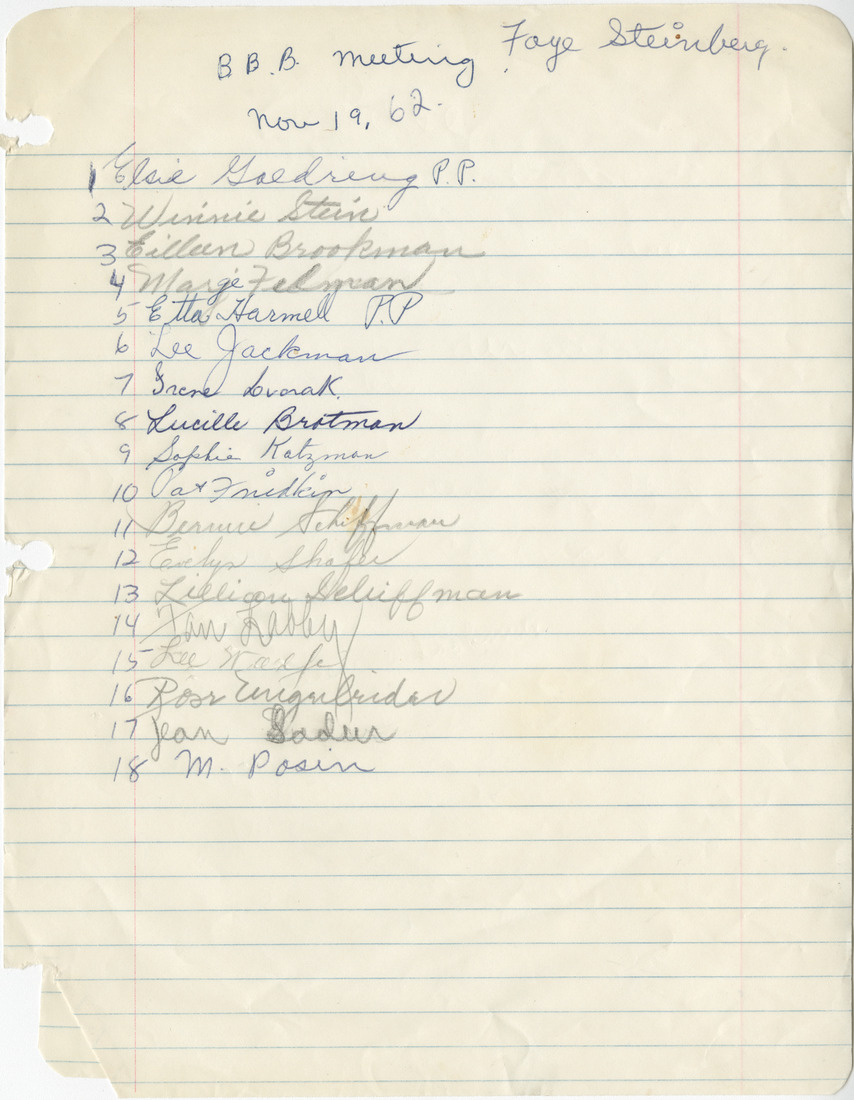 B.B.B. Meeting Faye Steinberg.
Nov 19, 62.
1 Elsie Goldring P.P.
2 Winnie Stein
3 Eilleen Brookman
4 Marge Felman
5 Etta Harmell P.P
6 Lee Jackman
7 Irene Dvorak.
8 Lucille Brotman
9 Sophie Katzman
10 Pat Fridkin
11 Bernice Schiffman
12 Evelyn Shafer
13 Lillian Schiffman
14 Fan Labby
15 Lee
16 Rose
17 Jean
18 M. Posin